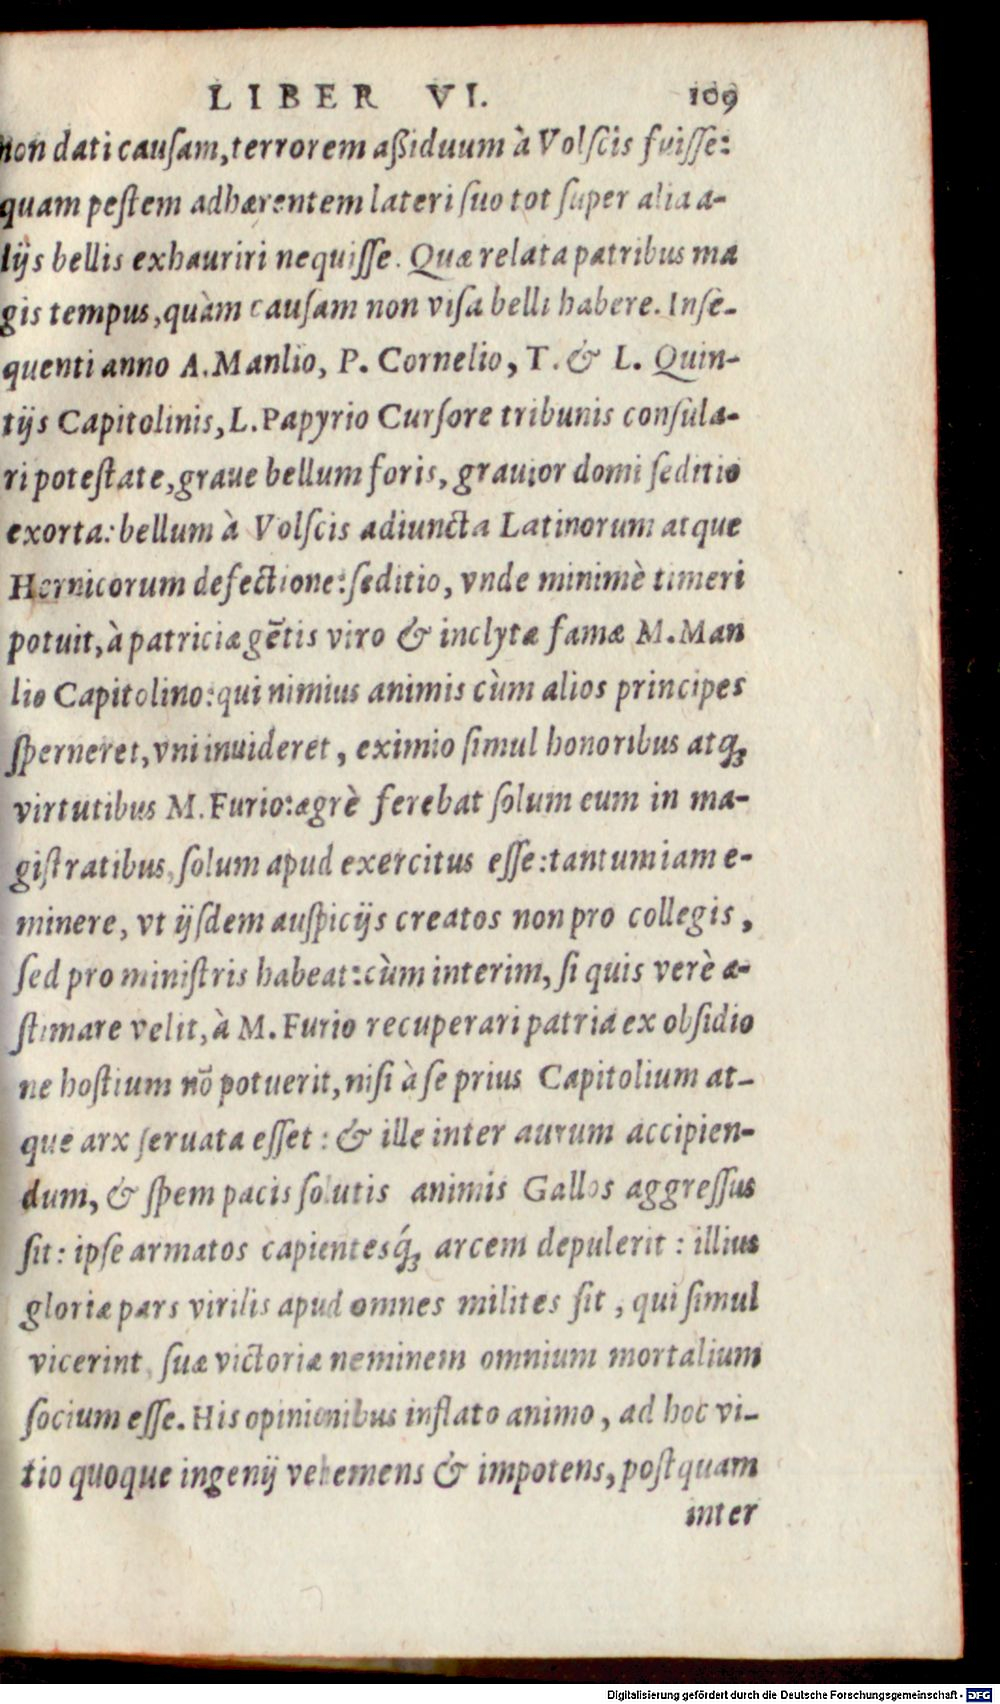 LIBER VI. 109
non dati causam, terrorem aßiduum à Volscis fuisse:
quam pestem adhærentem lateri suo tot super alia a-
lijs bellis exhauriri nequisse. Quæ relata patribus ma
gis tempus, quàm causam non visa belli habere. Inse-
quenti anno A. Manlio, P. Cornelio, T. & L. Quin-
tijs Capitolinis, L. Papyrio Cursore tribunis consula-
ri potestate, graue bellum foris, grauior domi seditio
exorta: bellum à Volscis adiuncta Latinorum atque
Hernicorum defectione: seditio, vnde minimè timeri
potuit, à patriciæ gẽtis viro & inclytæ famæ M. Man
lio Capitolino: qui nimius animis cùm alios principes
sperneret, vni inuideret, eximio simul honoribus atq;
virtutibus M. Furio: ægrè ferebat solum eum in ma-
gistratibus, solum apud exercitus esse: tantum iam e-
minere, vt ijsdem auspicijs creatos non pro collegis,
sed pro ministris habeat: cùm interim, si quis verè æ-
stimare velit, à M. Furio recuperari patria ex obsidio
ne hostium nõ potuerit, nisi à se prius Capitolium at-
que arx seruata esset: & ille inter aurum accipien-
dum, & spem pacis solutis animis Gallos aggressus
sit: ipse armatos capientesq́; arcem depulerit: illius
gloriæ pars virilis apud omnes milites sit, qui simul
vicerint, suæ victoriæ neminem omnium mortalium
socium esse. His opinionibus inflato animo, ad hoc vi-
tio quoque ingenij vehemens & impotens, postquam
inter
Digitalisierung gefördert durch die Deutsche Forschungsgemeinschaft - DFG